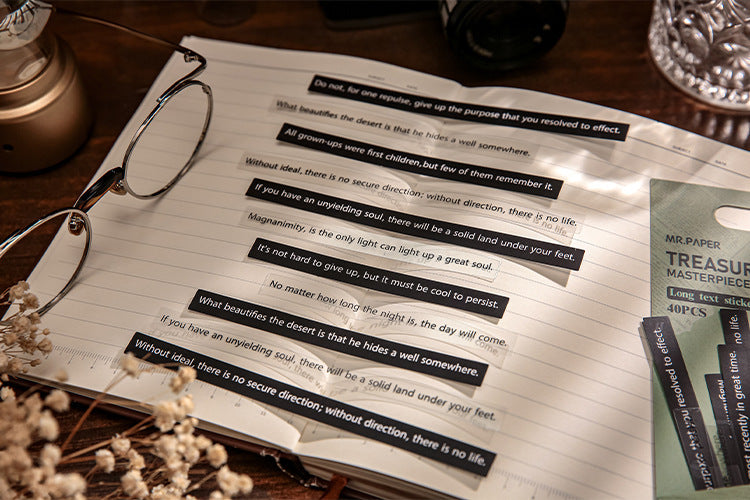 SUBJECT DATE
Do not, for one repulse, give up the purpose that you resolved to effect.
What beautifies the desert is that he hides a well somewhere.
All grown-ups were first children, but few of them remember it.
Without ideal, there is no secure direction; without direction, there is no life.
If you have an unyielding soul, there will be a solid land under your feet.
Magnanimity, is the only light can light up a great soul.
It's not hard to give up, but it must be cool to persist.
No matter how long the night is, the day will come.
What beautifies the desert is that he hides a well somewhere.
If you have an unyielding soul, there will be a solid land under your feet.
Without ideal, there is no secure direction; without direction, there is no life.
SUBJECT DATE
MR.PAPER
TREASUR
MASTERPIECE
Long text sticke
40PCS
urpose that you resolved to effect.
no life.
ost recently in great time.